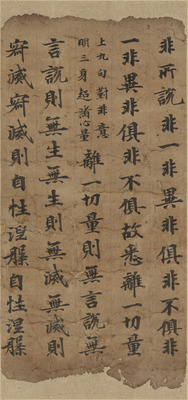 非所說非一非異非俱非不俱非
一非異非俱非不俱故悉離一切量
上九句對非意
明三身超諸心量
離一切量則無言說無
言說則無生無生則無滅無滅則
寂滅寂滅則自性涅槃自性涅槃